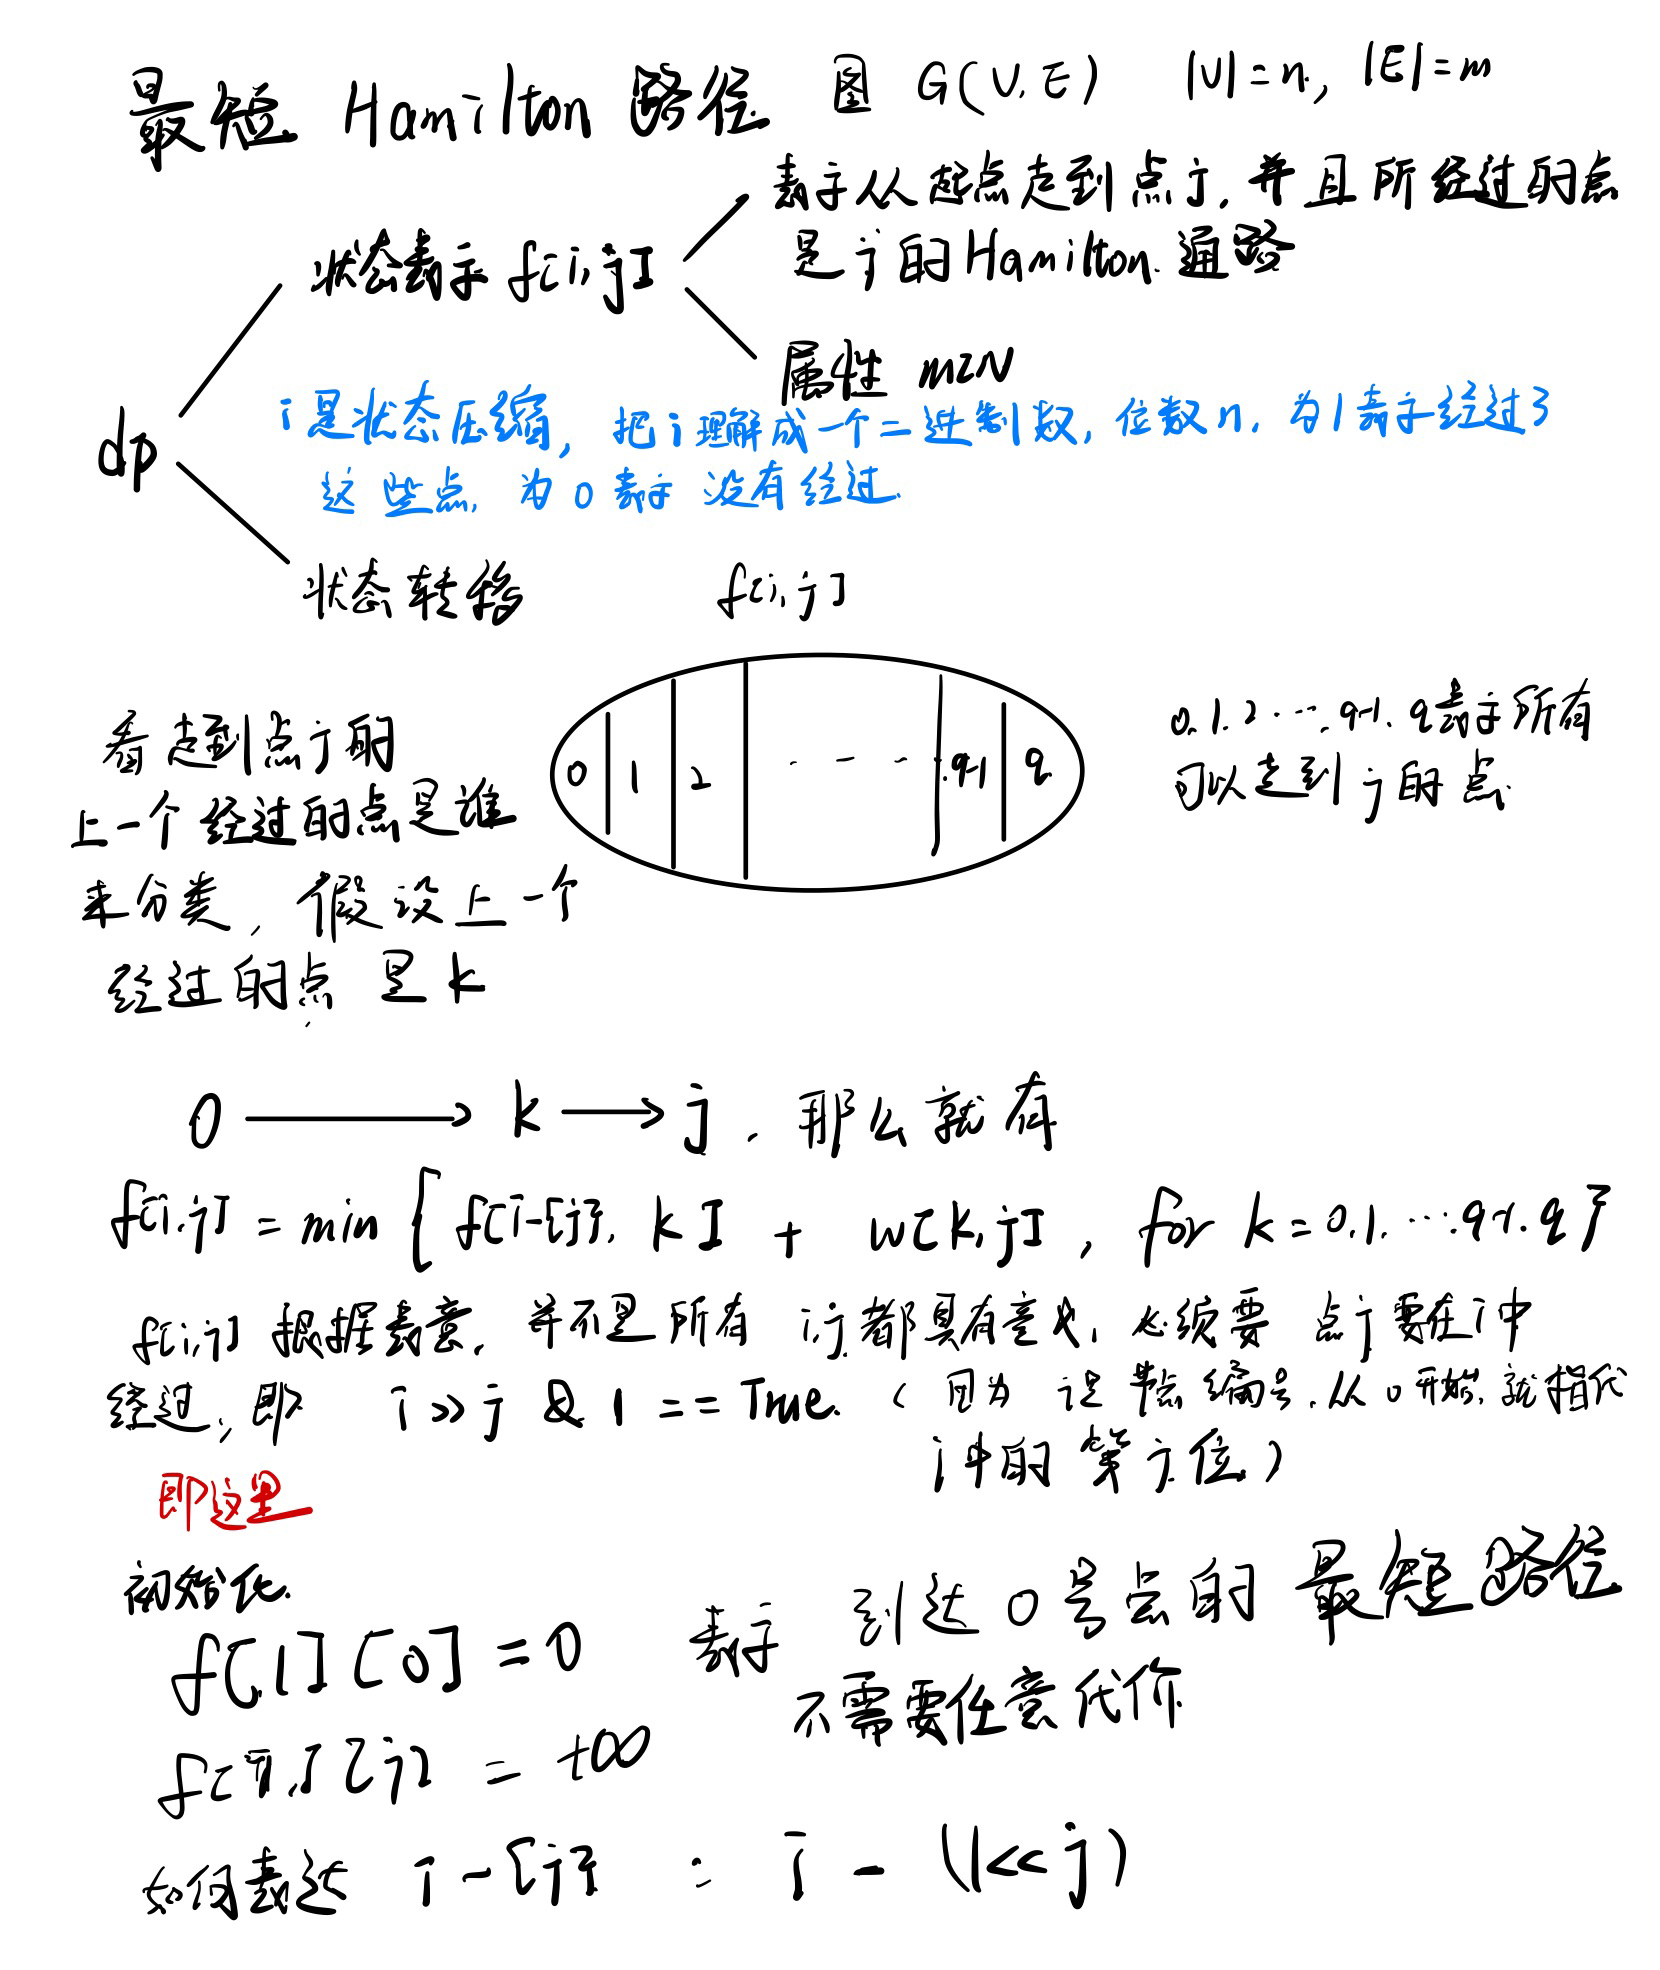 最短 Hamilton 路径 图 G(V,E) |V|=n, |E|=m
表示从起点走到点j,并且所经过的点
是i的Hamilton通路
状态表示 f[i,j]
属性 MIN
i是状态压缩,把i理解成一个二进制数,位数n,为1表示经过了
这些点,为0表示没有经过.
dp
状态转移 f[i,j]
看走到点j的
上一个经过的点是谁
来分类,假设上一个
经过的点是k
0 1 2 ---- q-1 q
0,1,2,...,q-1,q表示所有
可以走到j的点.
0 → k → j,那么就有
f[i,j] = min { f[i-{j}, k] + w[k,j], for k=0,1,...,q-1,q}
f[i,j] 根据表意,并不是所有 i,j都具有意义,必须要 点j要在i中
经过,即 i >> j & 1 == True. (因为 节点编号,从0开始,就指代
i中的第j位)
即这里
初始化.
f[1][0] = 0 表示 到达0号点的最短路径
不需要任意代价
f[i][j] = +∞
如何表达 i-{j} : i - (1<<j)